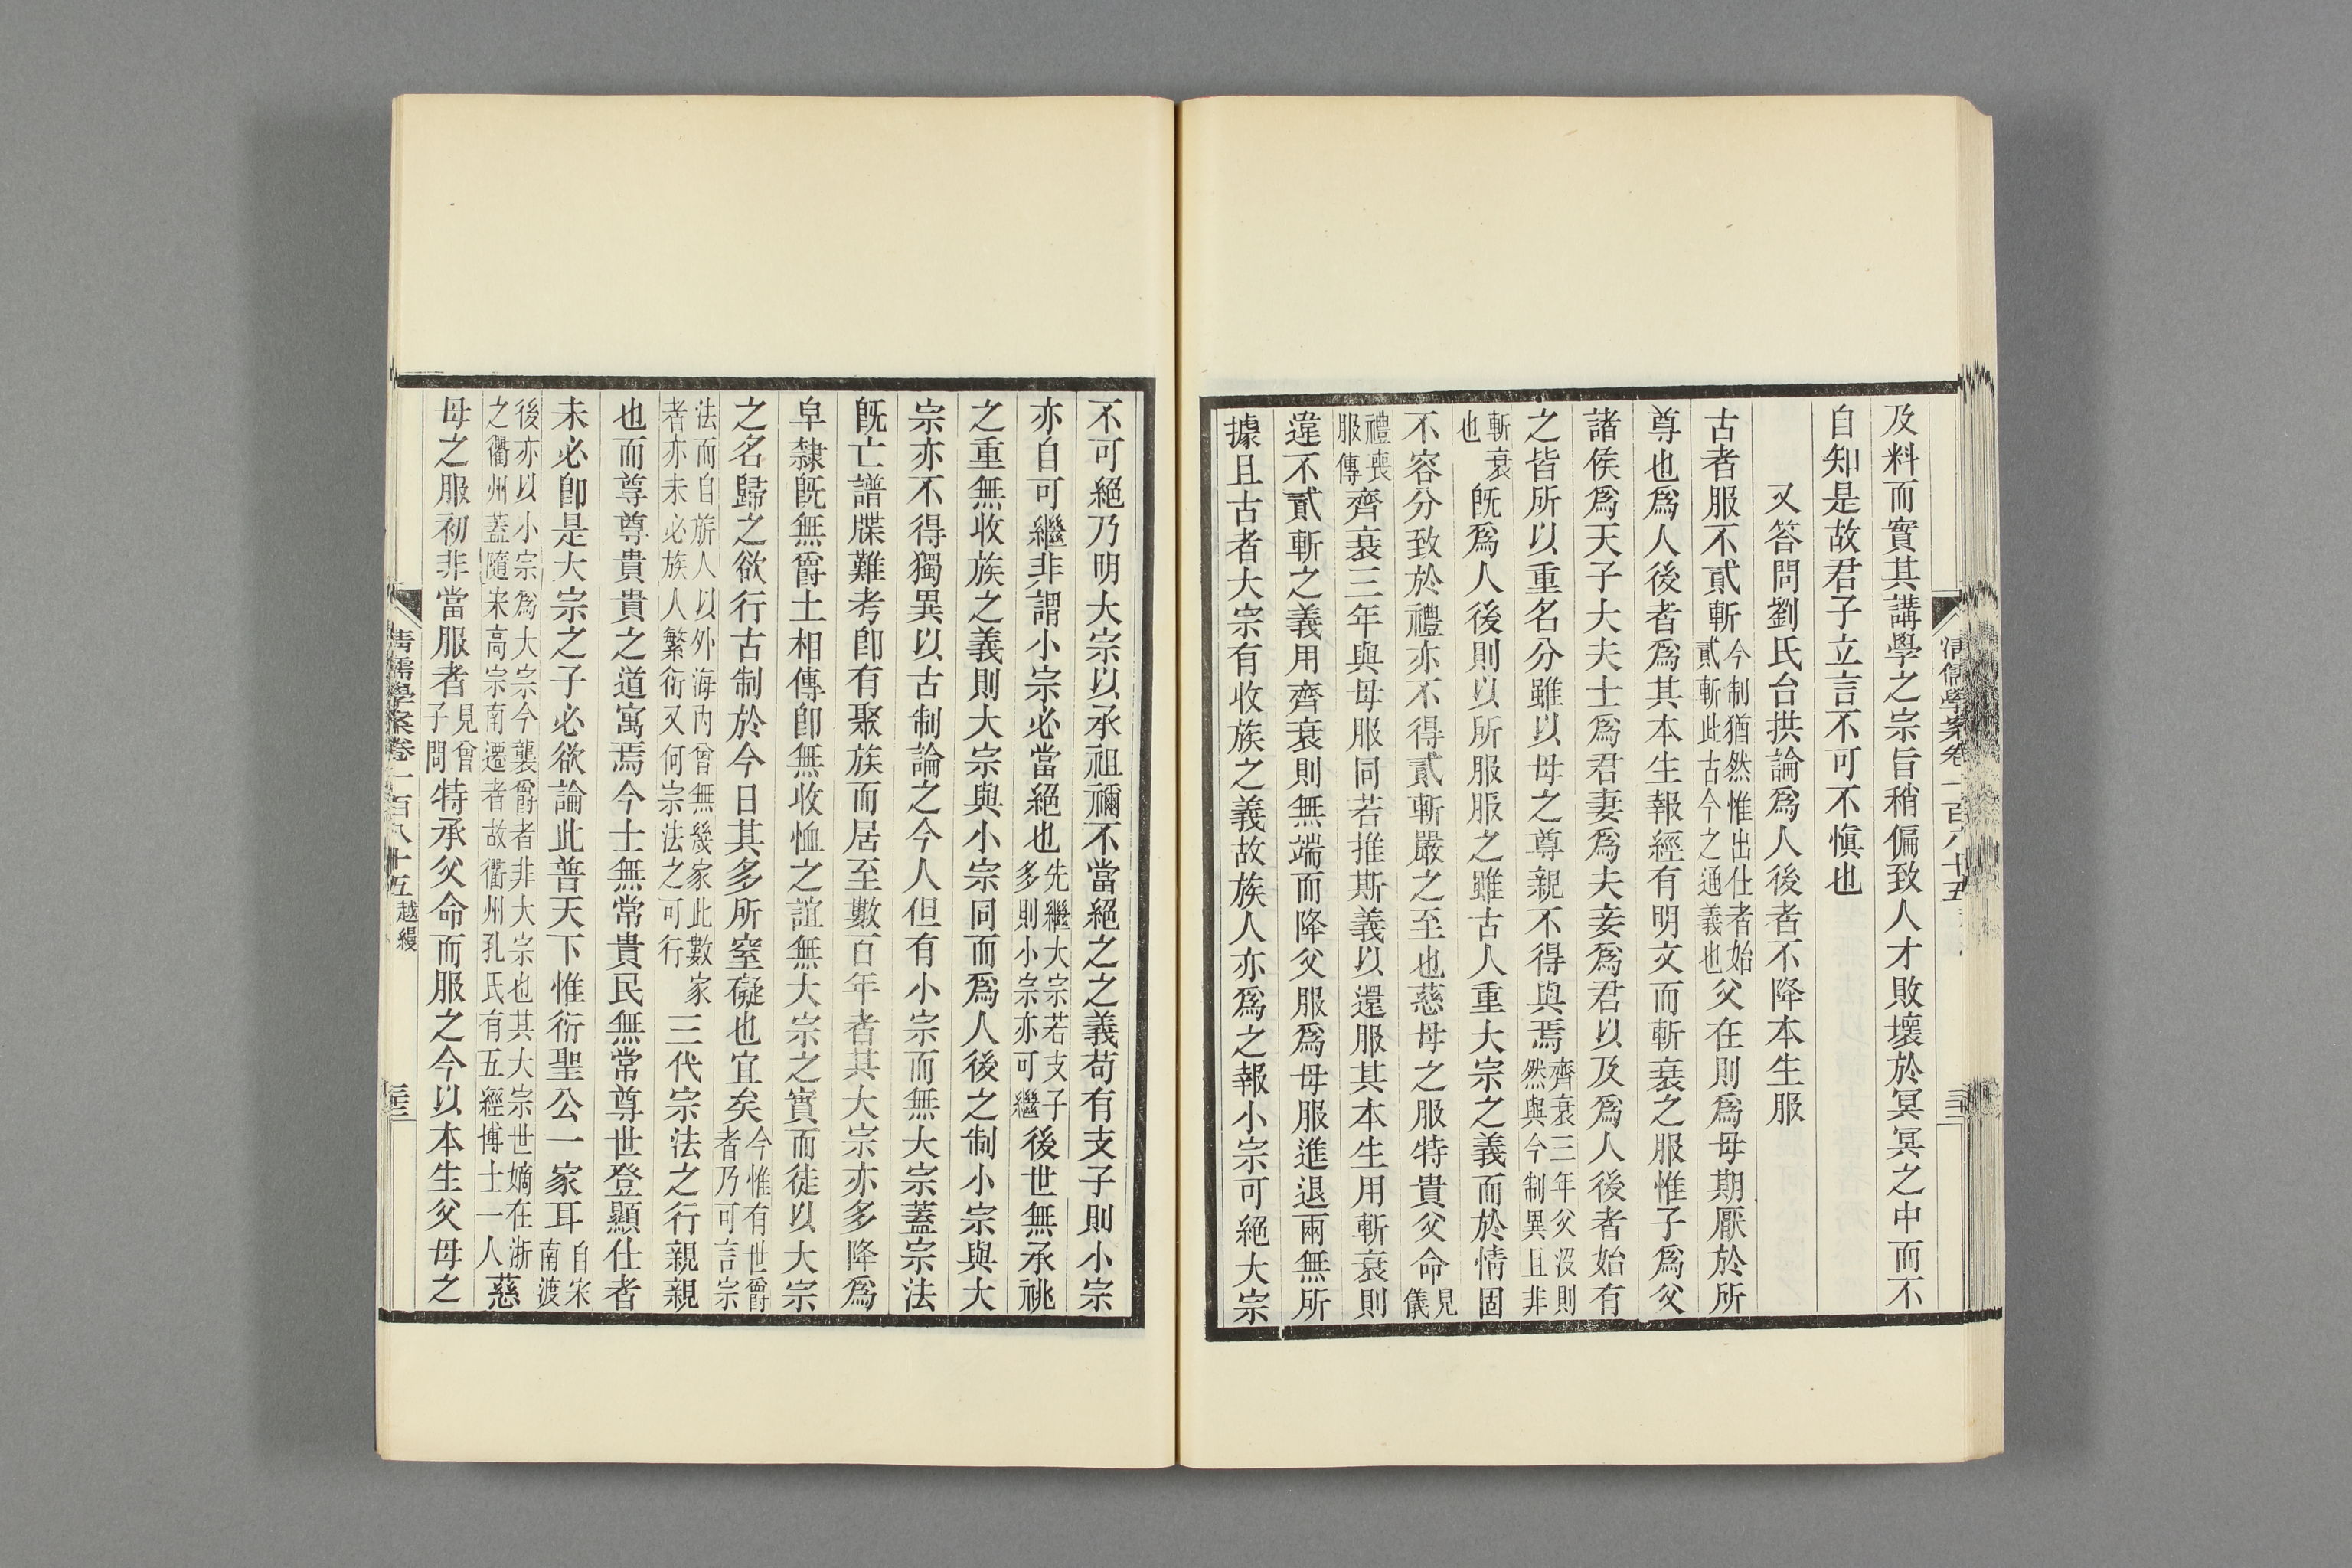 及料而實其講學之宗旨稍偏致人才敗壞於冥冥之中而不
自知是故君子立言不可不愼也
又答問劉氏台拱論爲人後者不降本生服
古者服不貳斬今制猶然惟出仕者始貳斬此古今之通義也父在則爲母期厭於所
尊也爲人後者爲其本生報經有明文而斬衰之服惟子爲父
諸侯爲天子大夫士爲君妻爲夫妾爲君以及爲人後者始有
之皆所以重名分雖以母之尊親不得與焉齊衰三年父沒則然與今制異且非
斬衰也旣爲人後則以所服服之雖古人重大宗之義而於情固
不容分致於禮亦不得貳斬嚴之至也慈母之服特貴父命見儀
禮喪服傳齊衰三年與母服同若推斯義以還服其本生用斬衰則
違不貳斬之義用齊衰則無端而降父服爲母服進退兩無所
據且古者大宗有收族之義故族人亦爲之報小宗可絕大宗
清儒學案卷一百八十五
不可絕乃明大宗以承祖禰不當絕之之義苟有支子則小宗
亦自可繼非謂小宗必當絕也先繼大宗若支子多則小宗亦可繼後世無承祧
之重無收族之義則大宗與小宗同而爲人後之制小宗與大
宗亦不得獨異以古制論之今人但有小宗而無大宗蓋宗法
旣亡譜牒難考卽有聚族而居至數百年者其大宗亦多降爲
皁隸旣無爵土相傳卽無收恤之誼無大宗之實而徒以大宗
之名歸之欲行古制於今日其多所窒礙也宜矣今惟有世爵者乃可言宗
法而自旂人以外海內曾無幾家此數家者亦未必族人繁衍又何宗法之可行三代宗法之行親親
也而尊尊貴貴之道寓焉今士無常貴民無常尊世登顯仕者
未必卽是大宗之子必欲論此普天下惟衍聖公一家耳自宋南渡
後亦以小宗爲大宗今襲爵者非大宗也其大宗世嫡在浙之衢州蓋隨宋高宗南遷者故衢州孔氏有五經博士一人慈
母之服初非當服者見曾子問特承父命而服之今以本生父母之
清儒學案卷一百八十五 越縵